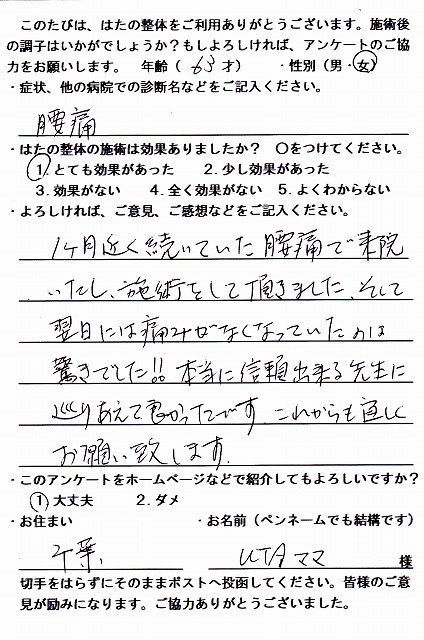 このたびは、はたの整体をご利用ありがとうございます。施術後
の調子はいかがでしょうか?もしよろしければ、アンケートのご協
力をお願いします。 年齢( 63 才) ・性別(男・女)
・症状、他の病院での診断名などをご記入ください。
腰痛
・はたの整体の施術は効果ありましたか? ○をつけてください。
1. とても効果があった 2. 少し効果があった
3. 効果がない 4. 全く効果がない 5. よくわからない
・よろしければ、ご意見、ご感想などをご記入ください。
1ヶ月近く続いていた腰痛で来院
いたし、施術をして頂きました。そして
翌日には痛みがなくなっていたのは
驚きでした!! 本当に信頼出来る先生に
巡りあえて良かったです。これからも宜しく
お願い致します。
・このアンケートをホームページなどで紹介してもよろしいですか?
1. 大丈夫 2. ダメ
・お住まい ・お名前(ペンネームでも結構です)
千葉 UTAママ 様
切手をはらずにそのままポストへ投函してください。皆様のご意
見が励みになります。ご協力ありがとうございました。